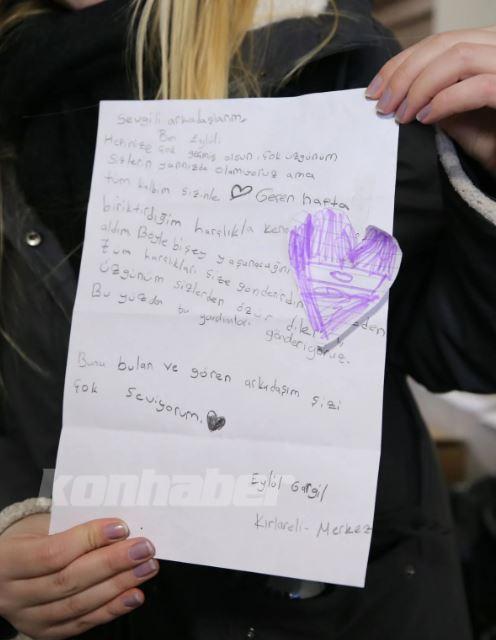 Sevgili arkadaşlarım,
Ben Eylül.
Hepinize çok geçmiş olsun, çok üzgünüm
Sizlerin yanınızda olamıyoruz ama
tüm kalbim sizinle ♡ Geçen hafta
biriktirdiğim harçlıkla
aldım Böyle bişey yaşanacağını
tüm harçlıkları size gönderirdim
üzgünüm sizlerden özür
Bu yüzden bu yardımları gönderiyoruz.
Bunu bulan ve gören arkadaşım sizi
çok seviyorum.
Eylül Gargil
Kırlareli - Merkez
konhaber